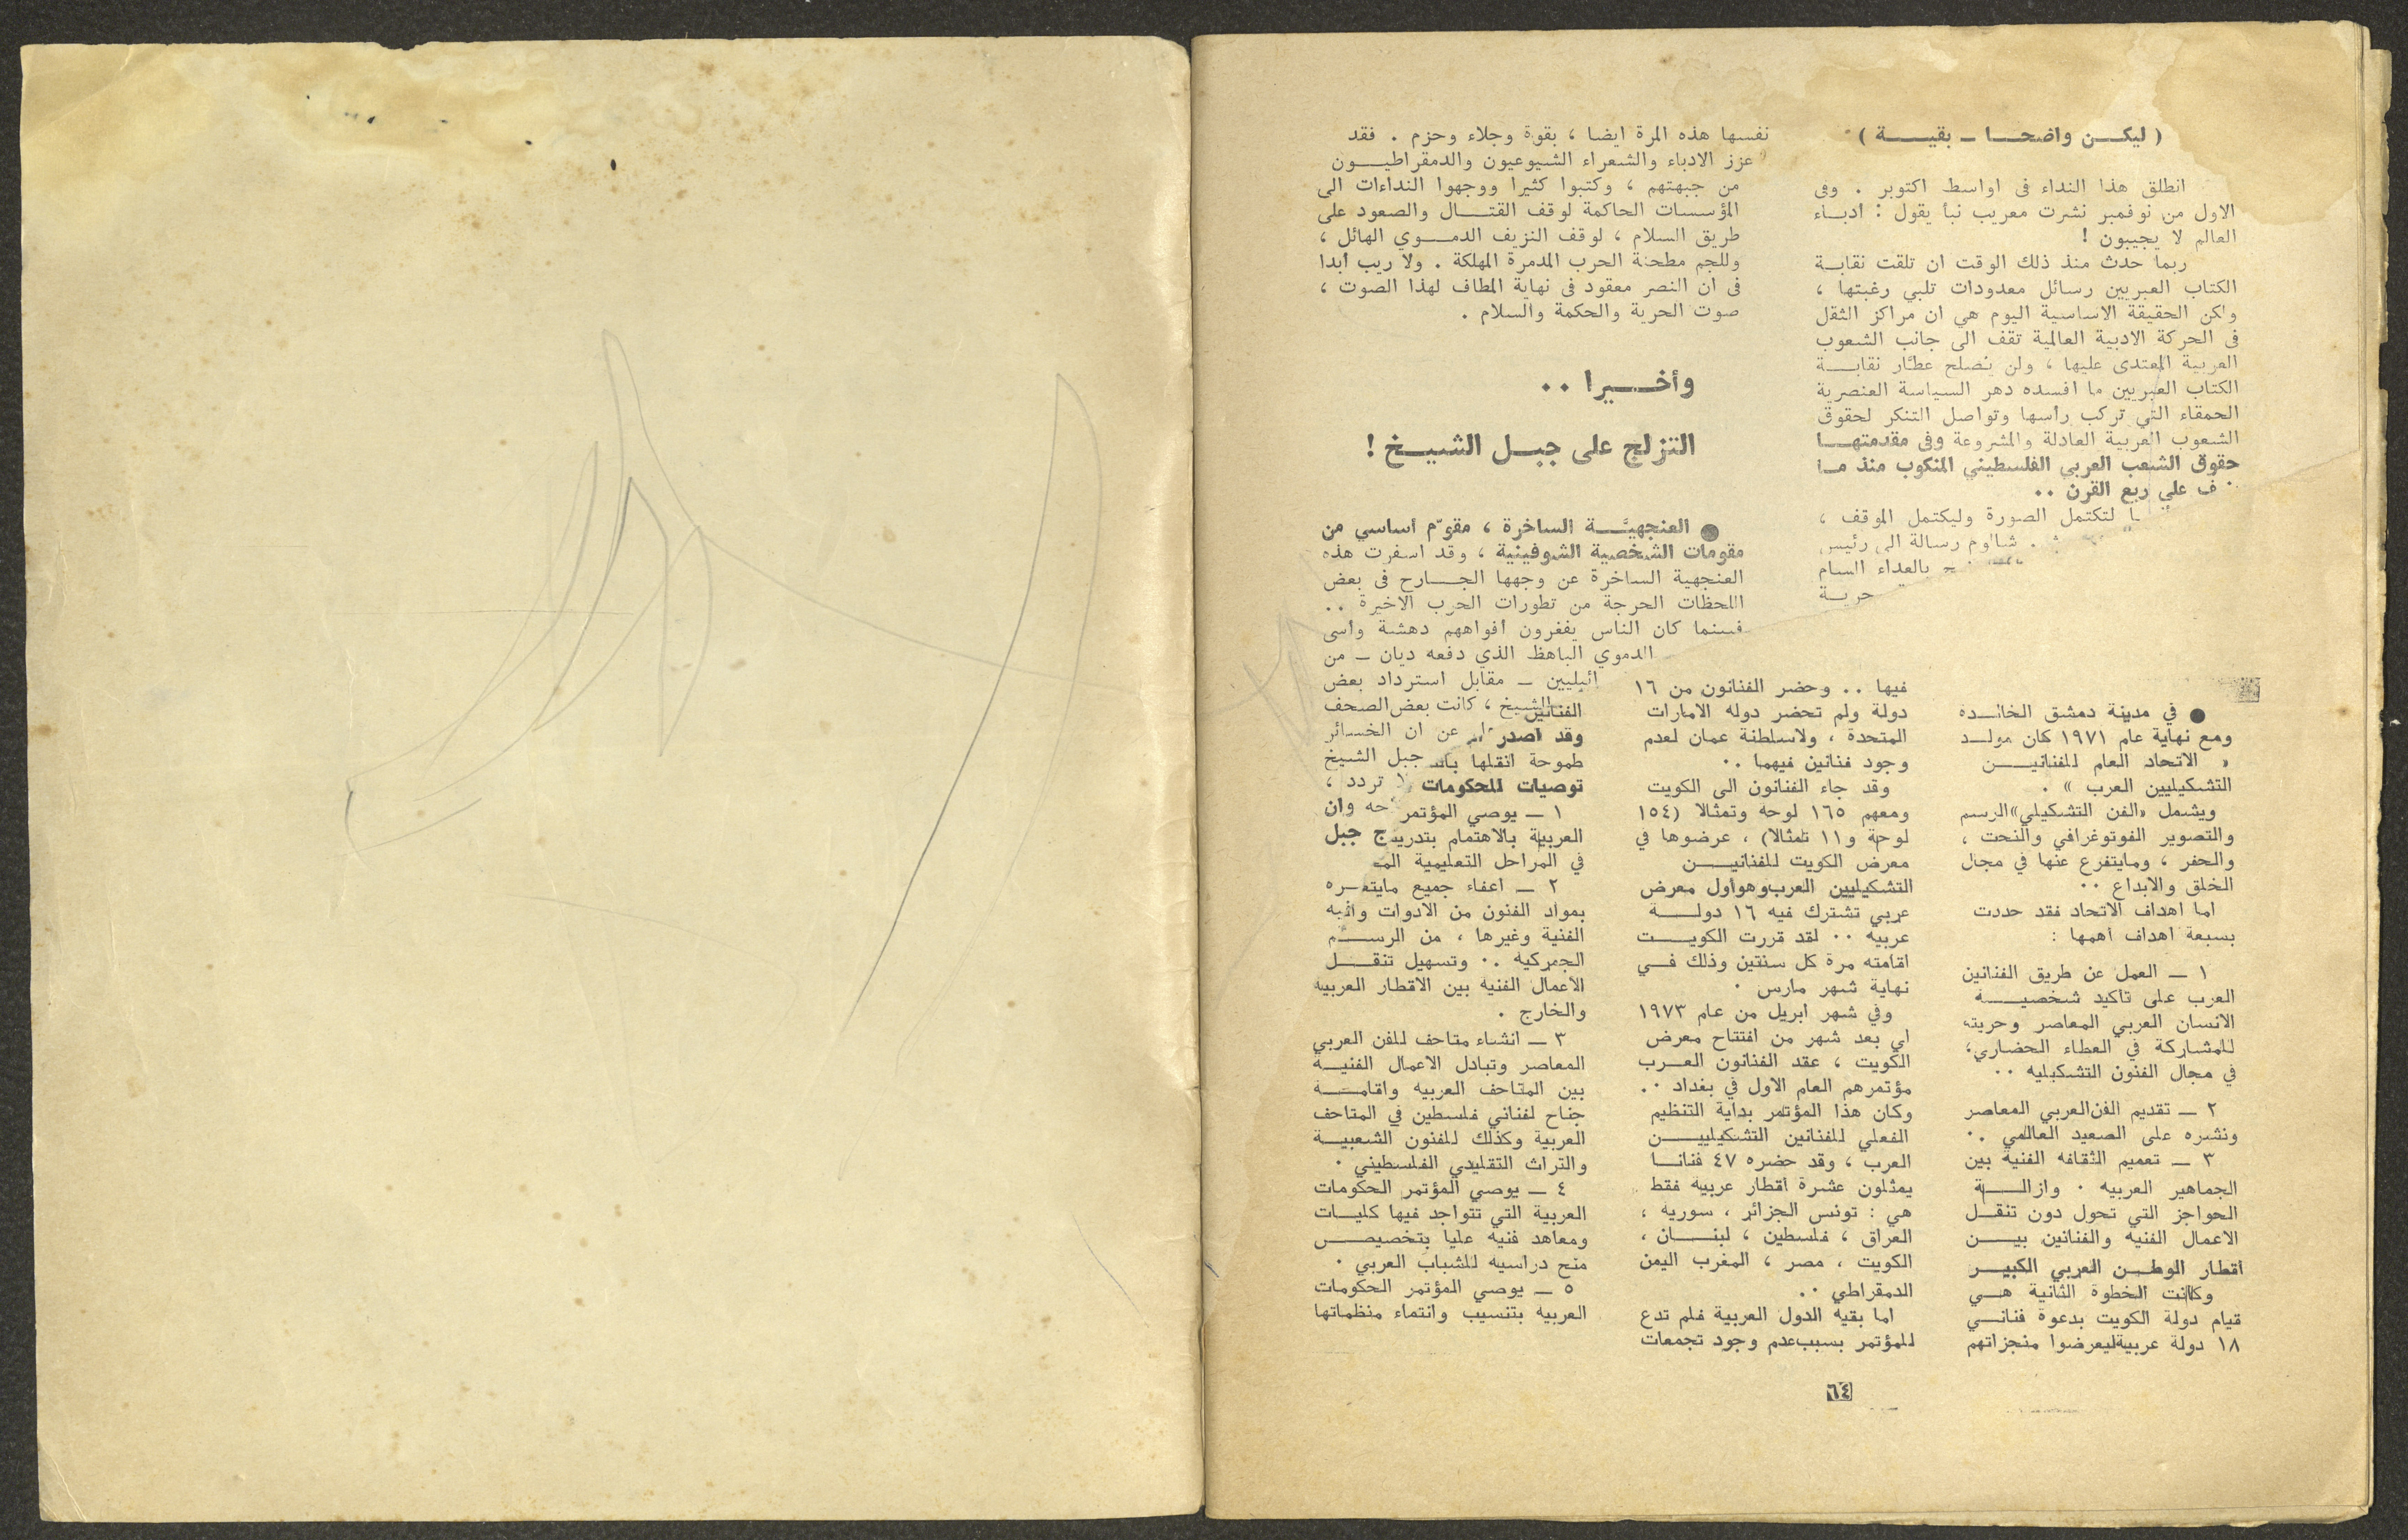 ( ليكـن واضحـا ـ بقيـة )
انطلق هذا النداء فى اواسط اكتوبر . وفى
الاول من نوفمبر نشرت معريب نبأ يقول : ادباء
العالم لا يجيبون !
ربما حدث منذ ذلك الوقت ان تلقت نقابة
الكتاب العبريين رسائل معدودات تلبي رغبتها ،
ولكن الحقيقة الاساسية اليوم هي ان مراكز الثقل
فى الحركة الادبية العالمية تقف الى جانب الشعوب
العربية المعتدى عليها ، ولن يُصلح عطّار نقابة
الكتاب العبريين ما افسده دهر السياسة العنصرية
الحمقاء التي تركب رأسها وتواصل التنكر لحقوق
الشعوب العربية العادلة والمشروعة وفى مقدمتها
حقوق الشعب العربي الفلسطيني المنكوب منذ ما
ف على ربع القرن ..
لتكتمل الصورة وليكتمل الموقف ،
ش . شالوم رسالة الى رئيس
بالعداء السام
حرية
نفسها هذه المرة ايضا ، بقوة وجلاء وحزم . فقد
عزز الادباء والشعراء الشيوعيون والدمقراطيون
من جبهتهم ، وكتبوا كثيرا ووجهوا النداءات الى
المؤسسات الحاكمة لوقف القتال والصعود على
طريق السلام ، لوقف النزيف الدموي الهائل ،
وللجم مطحنة الحرب المدمرة المهلكة . ولا ريب أبدا
فى ان النصر معقود فى نهاية المطاف لهذا الصوت ،
صوت الحرية والحكمة والسلام .
وأخـيرا ..
التزلج على جبـل الشيـخ !
● العنجهيَّـة الساخرة ، مقوّم أساسي من
مقومات الشخصية الشوفينية ، وقد اسفرت هذه
العنجهية الساخرة عن وجهها الجارح فى بعض
اللحظات الحرجة من تطورات الحرب الاخيرة ..
فبينما كان الناس يفغرون أفواههم دهشة وأسى
الدموي الباهظ الذي دفعه ديان ـ من
ائيليين ـ مقابل استرداد بعض
الشيخ ، كانت بعض الصحف
عن ان الخسائر
جبل الشيخ
لا تردد ،
حه وان
ج جبل
● في مدينة دمشق الخالـدة
ومع نهاية عام ١٩٧١ كان مولـد
« الاتحاد العام للفنانيـن
التشكيليين العرب » .
ويشمل «الفن التشكيلي» الرسم
والتصوير الفوتوغرافي والنحت ،
والحفر ، ومايتفرع عنها في مجال
الخلق والابداع ..
اما اهداف الاتحاد فقد حددت
بسبعة اهداف أهمها :
١ ـ العمل عن طريق الفنانين
العرب على تأكيد شخصيـة
الانسان العربي المعاصر وحريته
للمشاركة في العطاء الحضاري،
في مجال الفنون التشكيليه ..
٢ ـ تقديم الفن العربي المعاصر
ونشره على الصعيد العالمي ..
٣ ـ تعميم الثقافه الفنية بين
الجماهير العربيه . وازالـة
الحواجز التي تحول دون تنقـل
الاعمال الفنيه والفنانين بيـن
أقطار الوطـن العربي الكبيـر
وكانت الخطوة الثانية هـي
قيام دولة الكويت بدعوة فنانـي
١٨ دولة عربية ليعرضوا منجزاتهم
فيها .. وحضر الفنانون من ١٦
دولة ولم تحضر دوله الامارات
المتحدة ، ولا سلطنة عمان لعدم
وجود فنانين فيهما ..
وقد جاء الفنانون الى الكويت
ومعهم ١٦٥ لوحه وتمثالا (١٥٤
لوحة و١١ تمثالا) ، عرضوها في
معرض الكويت للفنانيـن
التشكيليين العرب وهو أول معرض
عربي تشترك فيه ١٦ دولـة
عربيه .. لقد قررت الكويـت
اقامته مرة كل سنتين وذلك فـي
نهاية شهر مارس .
وفي شهر أبريل من عام ١٩٧٣
اي بعد شهر من افتتاح معرض
الكويت ، عقد الفنانون العـرب
مؤتمرهم العام الاول في بغداد ..
وكان هذا المؤتمر بداية التنظيم
الفعلي للفنانين التشكيلييـن
العرب ، وقد حضره ٤٧ فنانـا
يمثلون عشرة أقطار عربيه فقط
هي : تونس الجزائر ، سوريه ،
العراق ، فلسطين ، لبنـان ،
الكويت ، مصر ، المغرب اليمن
الدمقراطي ..
اما بقيه الدول العربية فلم تدع
للمؤتمر بسبب عدم وجود تجمعات
الفنانين
وقد أصدر
طموحة انقلها
توصيات للحكومات
١ ـ يوصي المؤتمر
العربية بالاهتمام بتدريـ
في المراحل التعليمية
٢ ـ أعفاء جميع
بمواد الفنون من الادوات
الفنية وغيرها ، من الرسـم
الجمركيه .. وتسهيل تنقـل
الأعمال الفنيه بين الاقطار العربيه
والخارج .
٣ ـ انشاء متاحف للفن العربي
المعاصر وتبادل الاعمال الفنيـة
بين المتاحف العربيه واقامـة
جناح لفناني فلسطين في المتاحف
العربية وكذلك للفنون الشعبيـة
والتراث التقليدي الفلسطيني .
٤ ـ يوصي المؤتمر الحكومات
العربية التي تتواجد فيها كليـات
ومعاهد فنيه عليا بتخصيـص
منح دراسيه للشباب العربي .
٥ ـ يوصي المؤتمر الحكومات
العربيه بتنسيب وانتماء منظماتها
٦٤